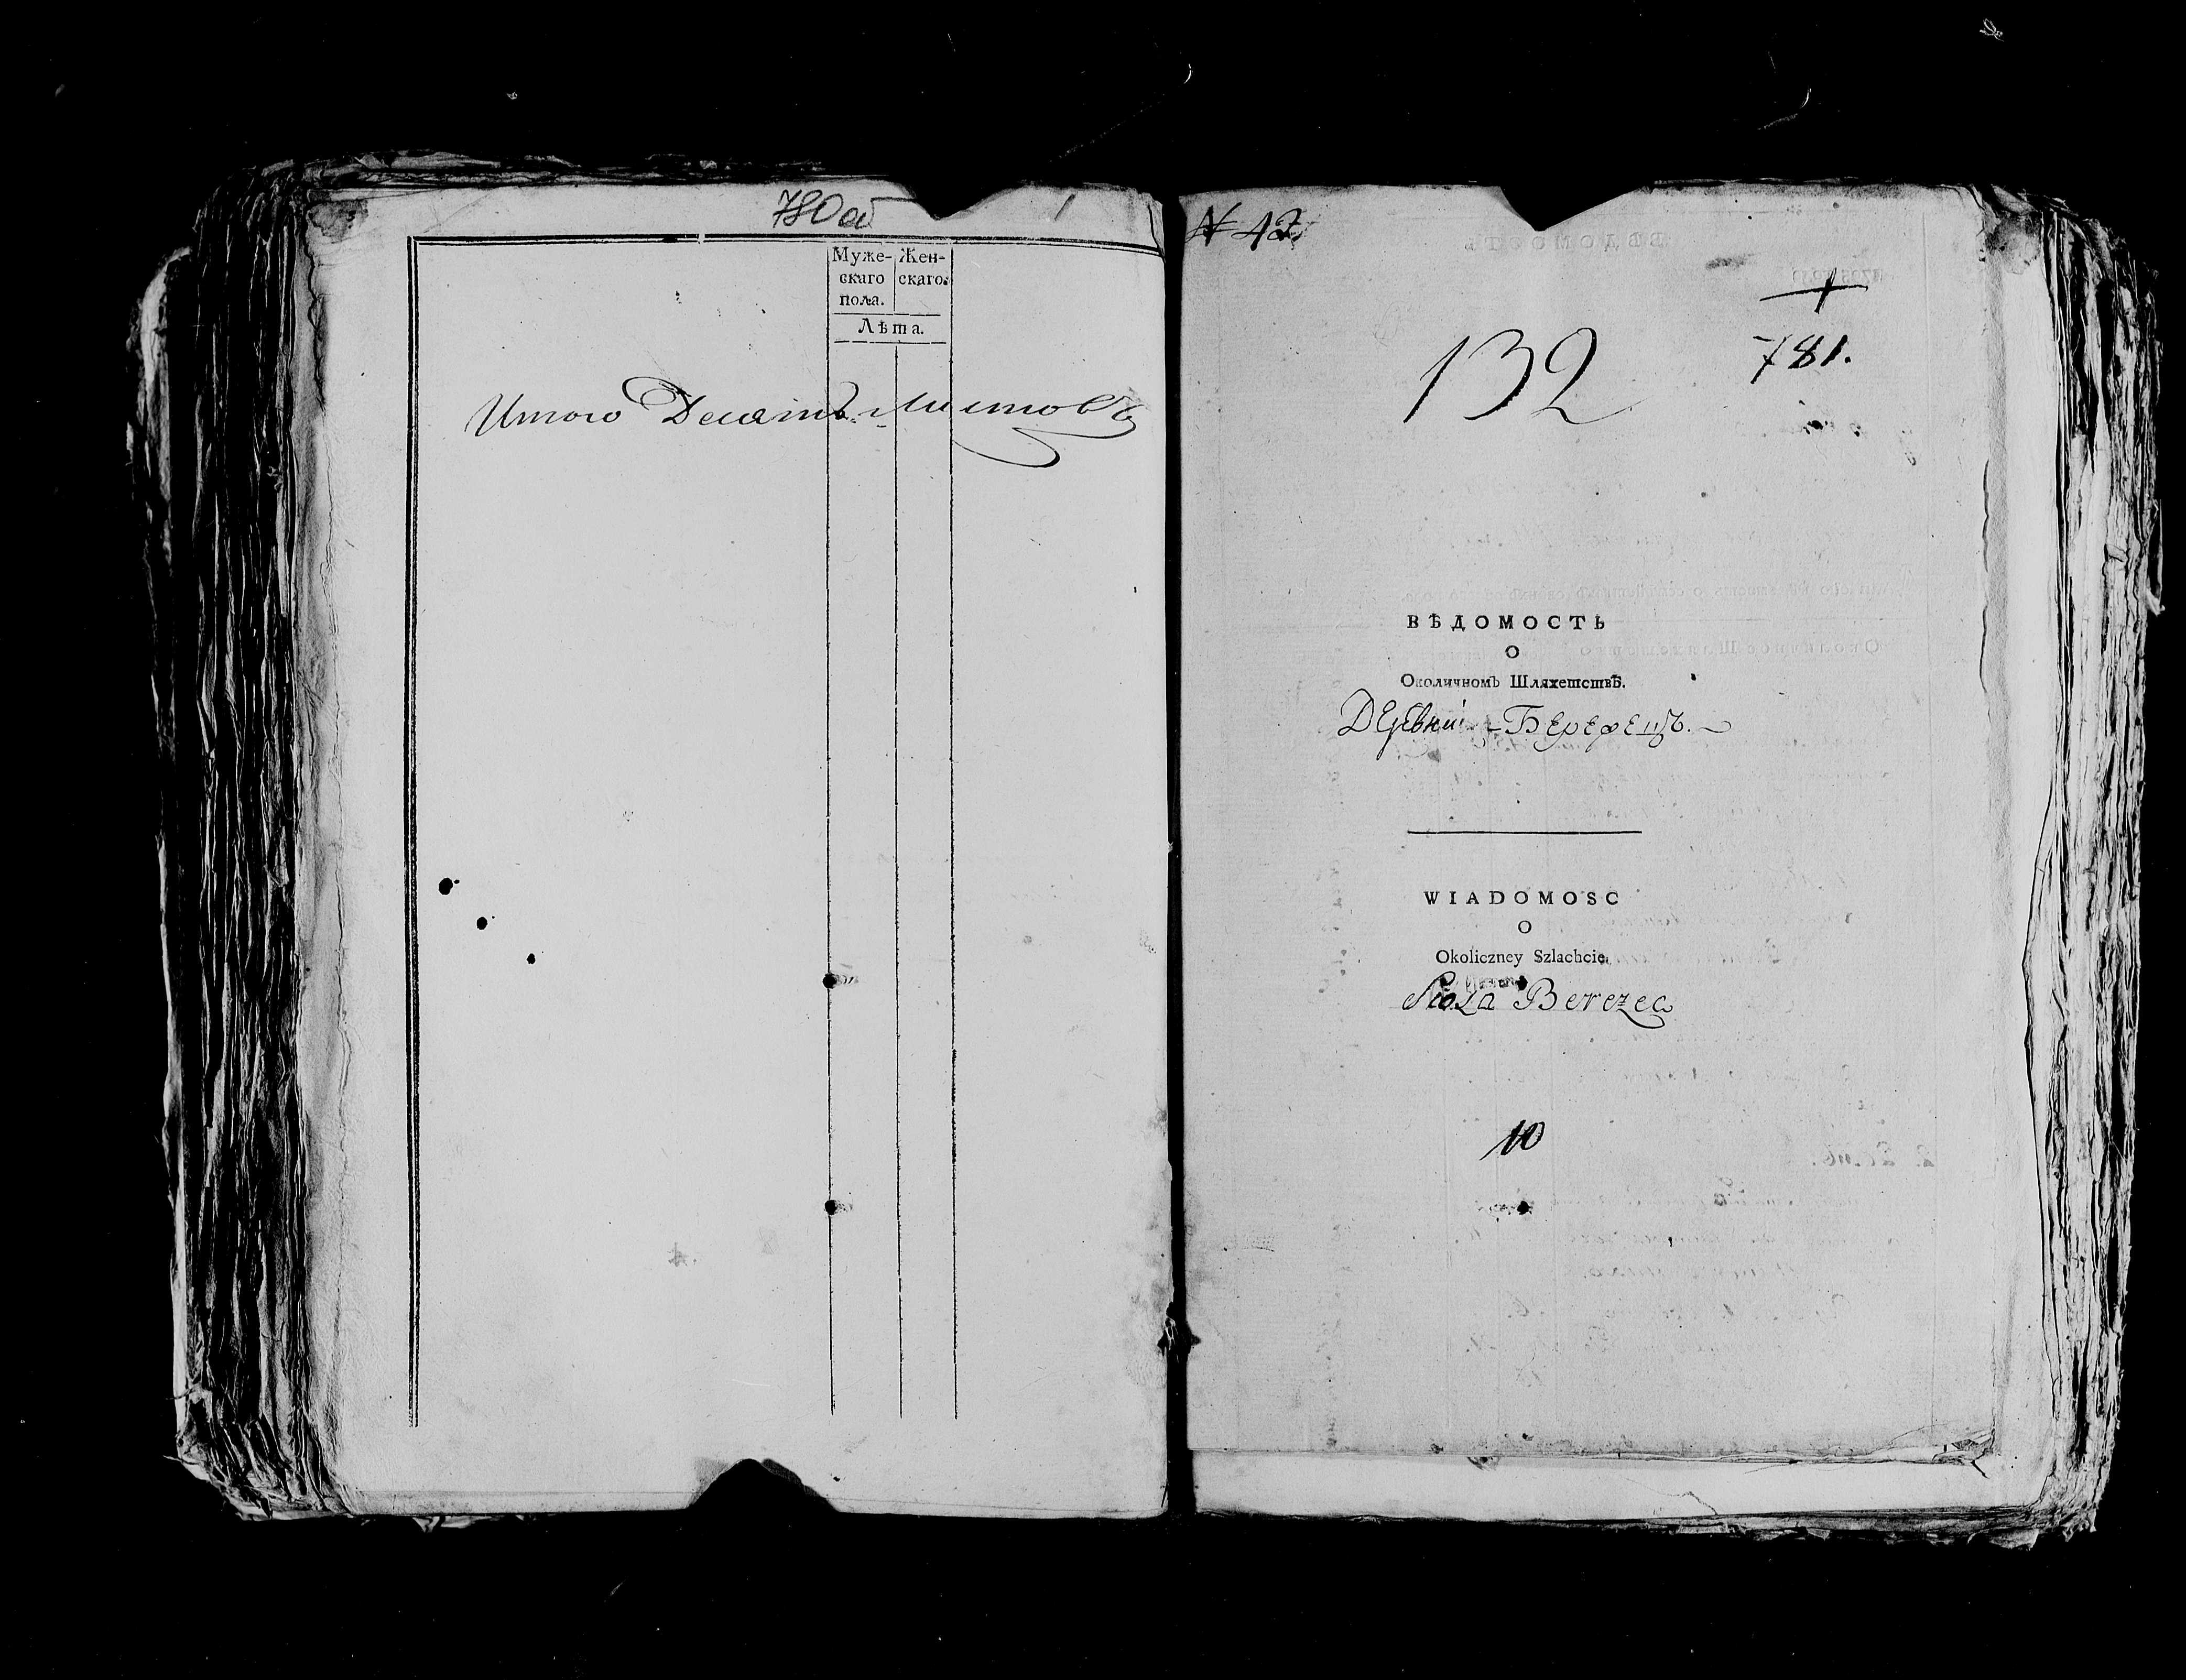 780об
Муже- Жен-
скаго скаго.
пола.
Лѣта.
Итого Десять листовъ
№ 42.
132
781.
ВѢДОМОСТЬ
О
Околичномъ Шляхетствѣ.
Деревни Березецъ.
WIADOMOSC
O
Okoliczney Szlachcie
Sioła Berezec
10